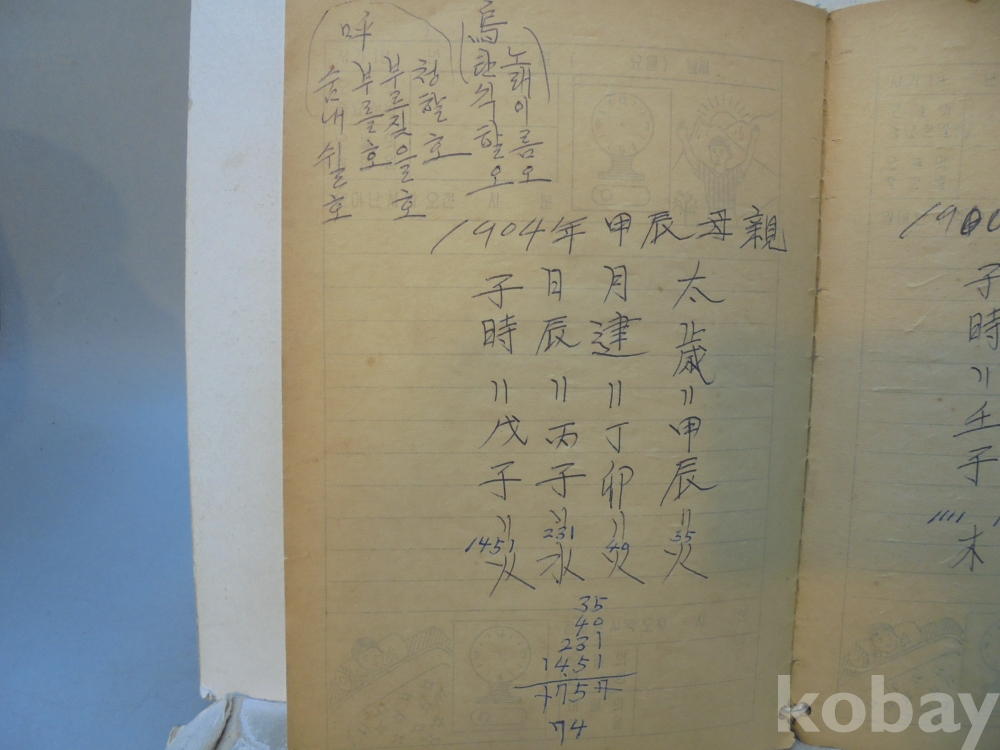 呼
청할호
부르짖을호
부를호
숨내쉴호
烏
노래이름오
탄식할오
1904年 甲辰 母親
太歲 = 甲辰 = 35 火
月建 = 丁卯 = 40 火
日辰 = 丙子 = 231 水
子時 = 戊子 = 1451 火
35
40
231
1451
1757
74
子時 = 壬子
木
kobay